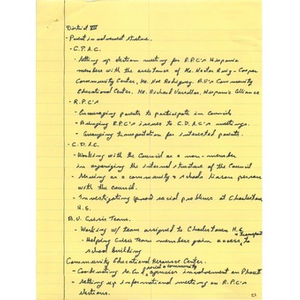 District VIII
- Parent involvement Structure.
- C.P.A.C.
- Setting up election meeting for R.P.C's Hispanic
members with the assistance of Mr. Hector Ruiz - Cooper
Community Center, Mr. Joe Rodriguez, B.U's Community
Educational Center, Mr. Richard
- R.P.C's
- Encouraging parents to participate in Councils
- Bringing R.P.C's issues to C.D.A.C meetings.
- Arranging transportation for interested parents.
- C.D.A.C.
- Working with the Council as a member
in organizing the internal structure of the Council
- Meeting as a community & schools liaison person
with the council.
- Investigating special social problems at Charlestown
H.S.
B.U. Crisis Teams.
- Working w/ team assigned to Charlestown H.S
& transport
- Helping Crisis Team members gain access to
school building
Community Educational Resource Center.
- Coordinating social & community
agencies involvement on Phase I
- Setting up informational meetings on R.P.C's
elections.